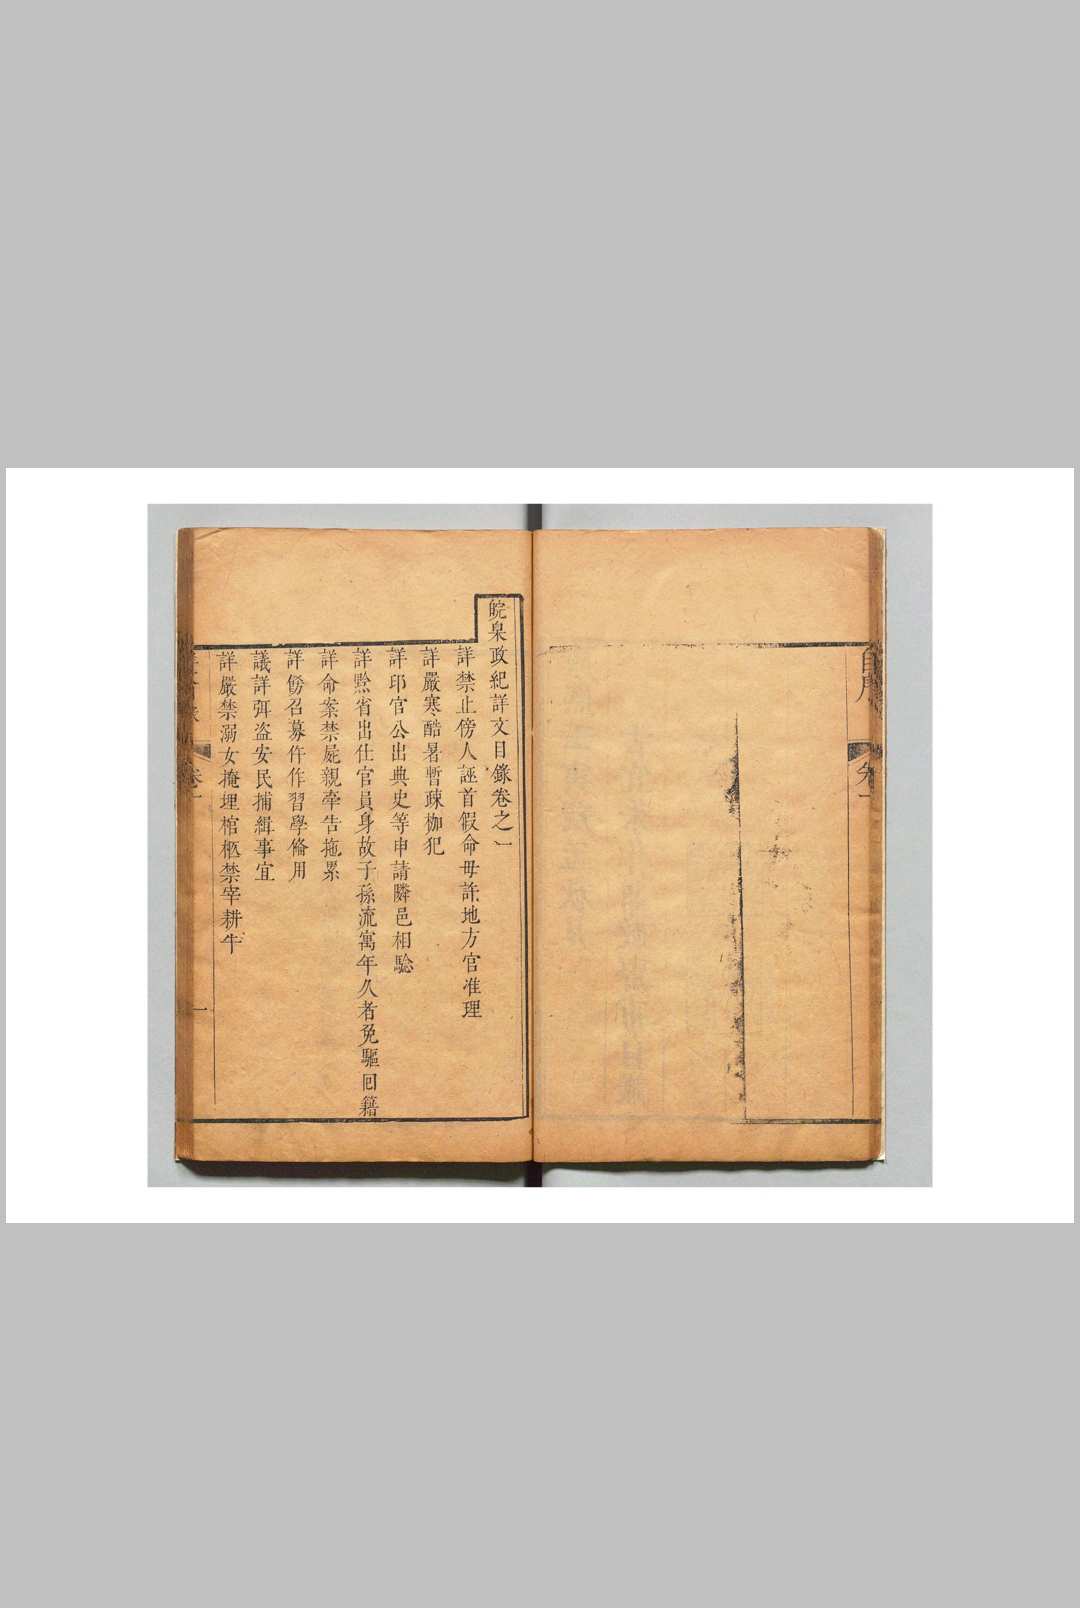 自序
卷一
皖臬政紀詳文目錄卷之一
詳禁止傍人誣首假命毋許地方官准理
詳嚴寒酷暑暫疎枷犯
詳印官公出典史等申請隣邑相騐
詳黔省出仕官員身故子孫流寓年久者免驅回籍
詳命案禁屍親牽告拖累
詳飭召募仵作習學偹用
議詳弭盗安民捕緝事宜
詳嚴禁溺女掩埋棺柩禁宰耕牛
卷一
一